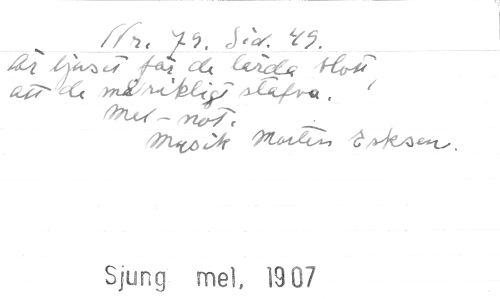 Nr. 79. Sid. 49.
är ljuset för de lärda blott,
att de må riktigt stafva.
Mel-not.
Musik Morten Esksen.
Sjung mel, 1907